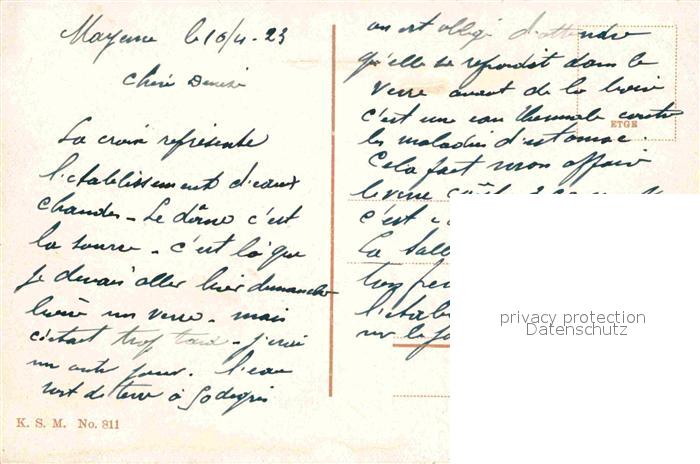 Mayence le 16/4-23
Chère Denise
La croix représente
l'établissement d'eaux
chaudes - Le dôme c'est
la source - c'est là que
je devais aller hier dimanche
boire un verre - mais
c'était trop tard - j'irai
un autre jour. l'eau
sort de terre à 50 degrés
K. S. M. No. 811
on est obligé d'attendre
qu'elle se refroidit dans le
verre avant de la boire
c'est une eau thermale contre
les maladies d'estomac.
Cela fait mon affaire
le verre coûte
c'est
La Salle
trop
l'établ
sur le
ETGE
privacy protection
Datenschutz